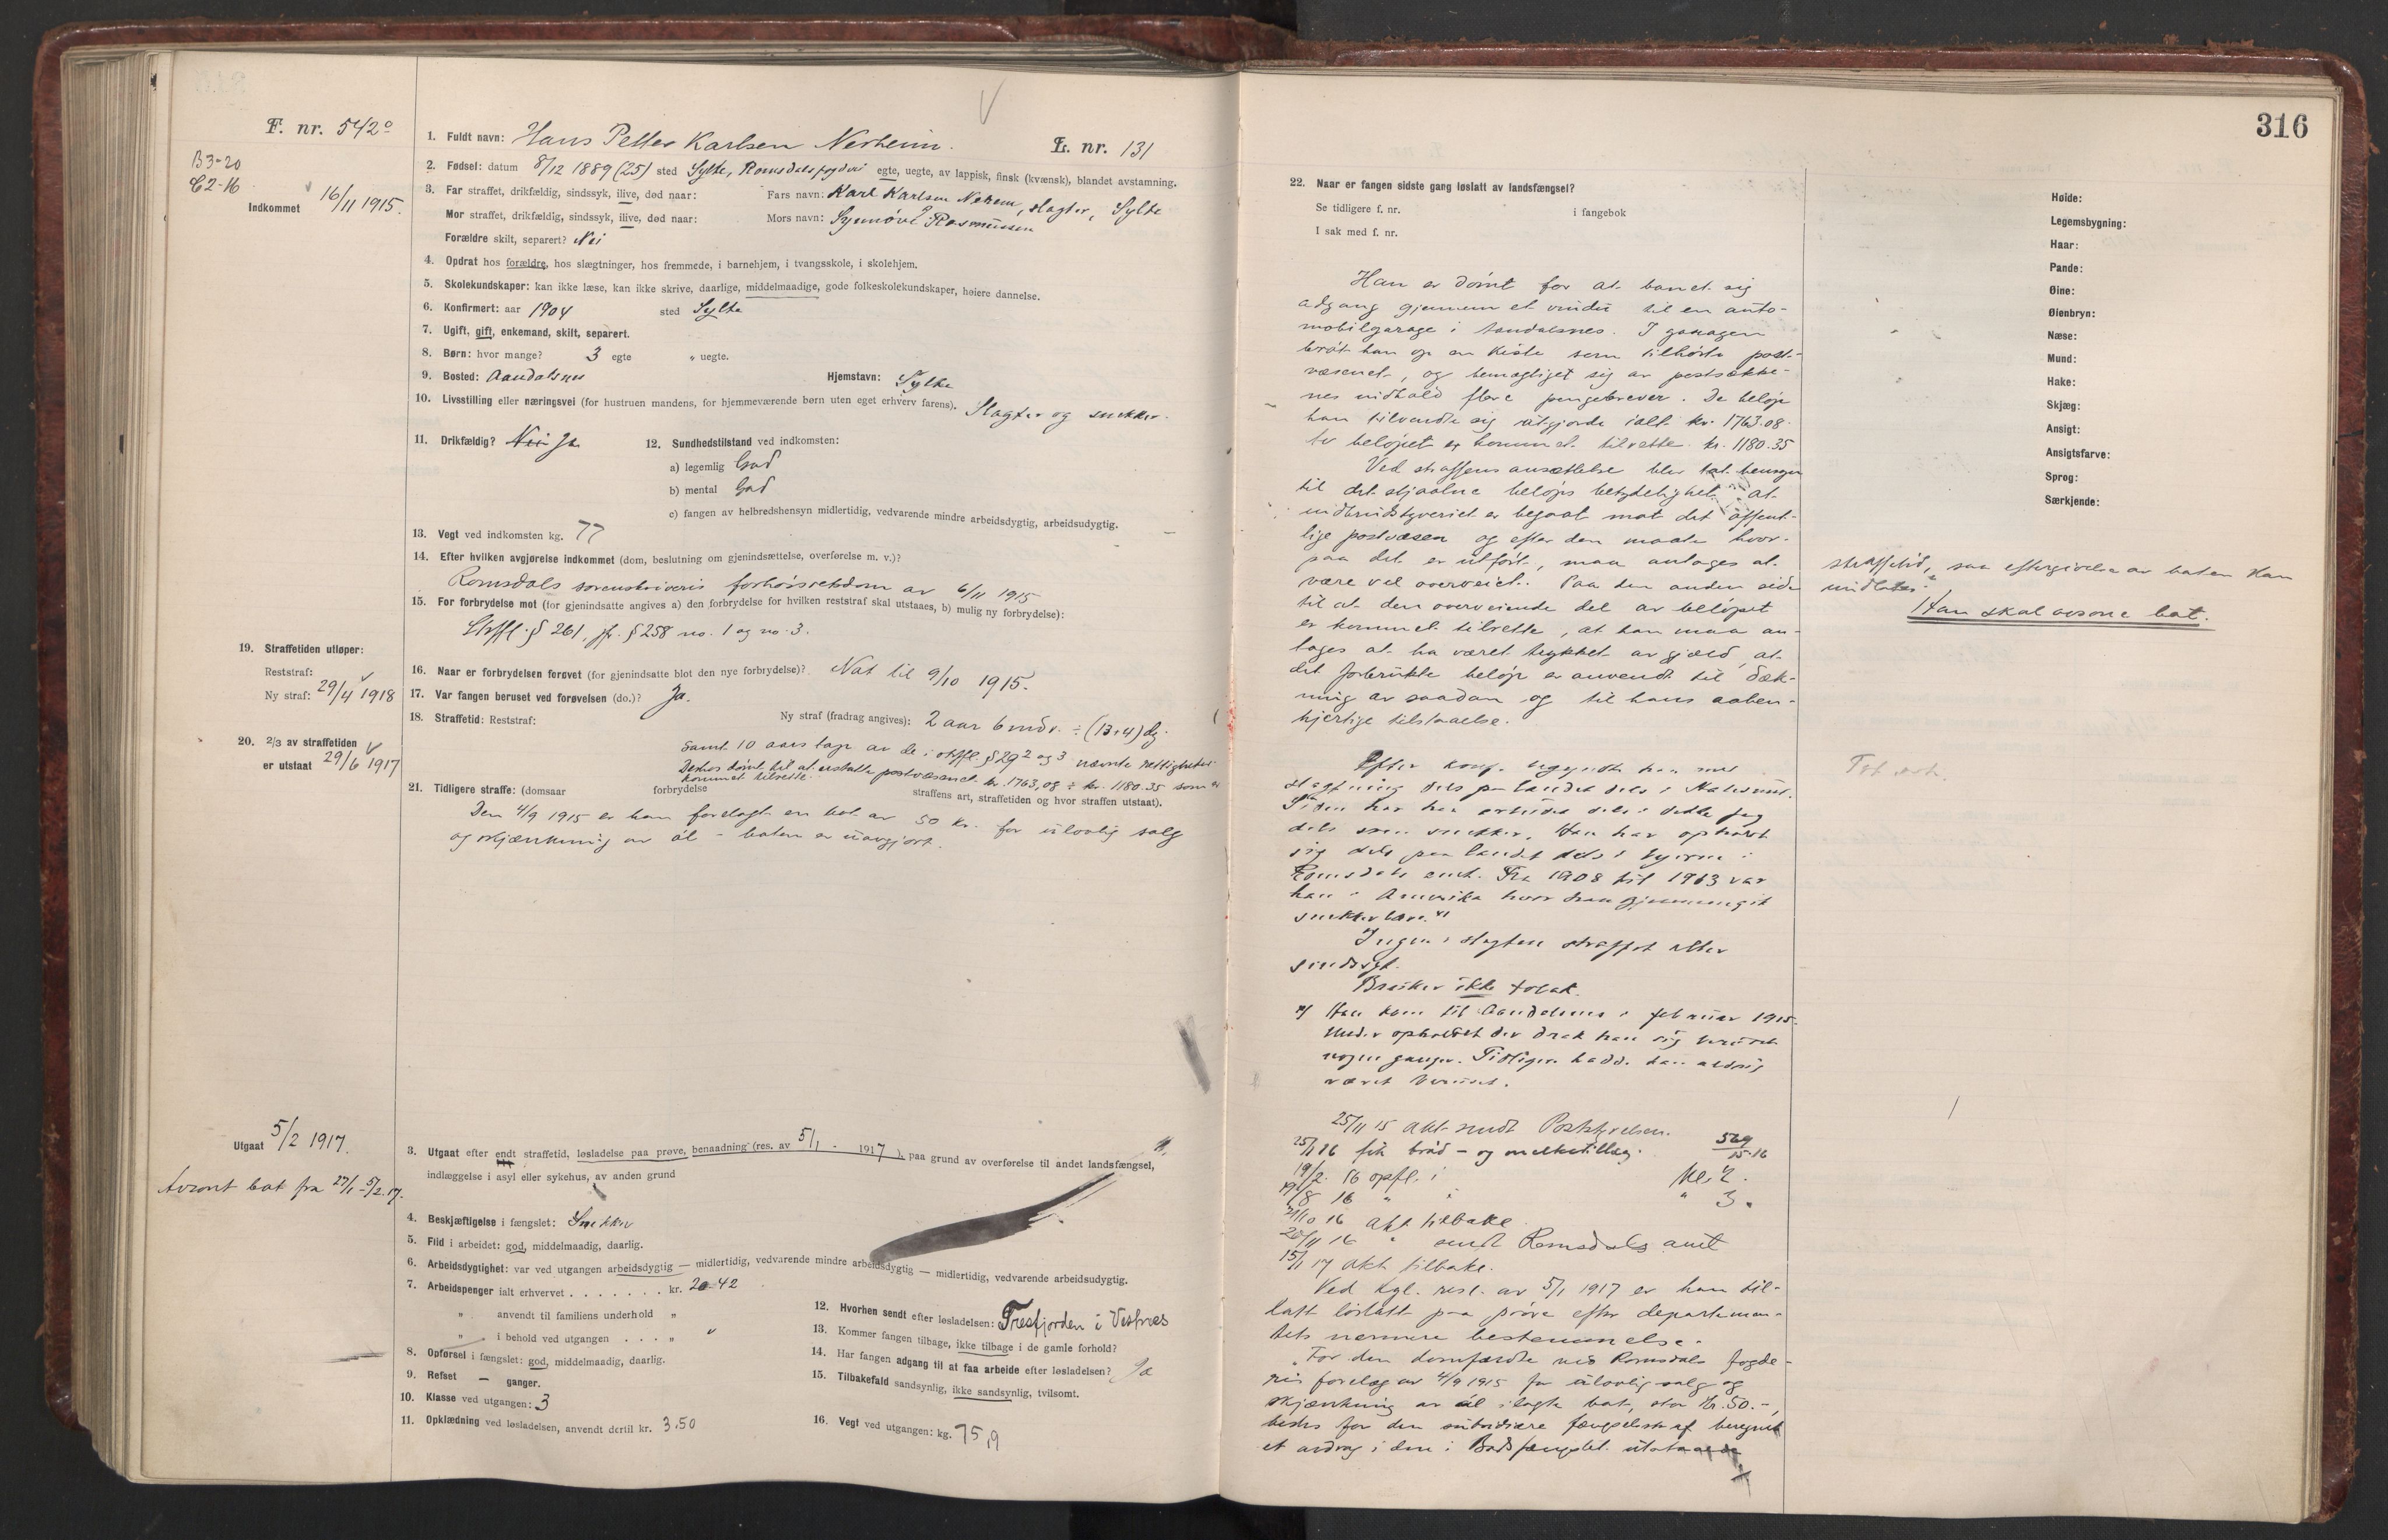 F. nr. 542⁰
B3-20
C2-16
Indkommet 16/11 1915.
1. Fuldt navn: Hans Petter Karlsen Nerheim. L. nr. 131
2. Fødsel: datum 8/12 1889 (25) sted Sylte, Romsdals fogderi egte, uegte, av lappisk, finsk (kvænsk), blandet avstamning.
3. Far straffet, drikfældig, sindssyk, ilive, død naar: Fars navn: Karl Karlsen Nerem, slagter, Sylte
Mor straffet, drikfældig, sindssyk, ilive, død naar: Mors navn: Synnøve Rasmussen
Forældre skilt, separert? Nei
4. Opdrat hos forældre, hos slægtninger, hos fremmede, i barnehjem, i tvangsskole, i skolehjem.
5. Skolekundskaper: kan ikke læse, kan ikke skrive, daarlige, middelmaadige, gode folkeskolekundskaper, høiere dannelse.
6. Konfirmert: aar 1904 sted Sylte
7. Ugift, gift, enkemand, skilt, separert.
8. Børn: hvor mange? 3 egte „ uegte.
9. Bosted: Aandalsnes Hjemstavn: Sylte
10. Livsstilling eller næringsvei (for hustruen mandens, for hjemmeværende børn uten eget erhverv farens). Slagter og snekker.
11. Drikfældig? Nei Ja 12. Sundhetstilstand ved indkomsten:
a) legemlig God
b) mental God
c) fangen av helbredshensyn midlertidig, vedvarende mindre arbeidsdygtig, arbeidsudygtig.
13. Vegt ved indkomsten kg. 77
14. Efter hvilken avgjørelse indkommet (dom, beslutning om gjenindsættelse, overførelse m. v.)?
Romsdals sorenskriveris forhørsretsdom av 6/11 1915
15. For forbrydelse mot (for gjenindsatte angives a) den forbrydelse for hvilken reststraf skal utstaaes, b) mulig ny forbrydelse):
Strffl. § 261, jfr. § 258 no. 1 og no. 3.
19. Straffetiden utløper:
Reststraf:
Ny straf: 29/4 1918
16. Naar er forbrydelsen forøvet (for gjenindsatte blot den nye forbrydelse)? Nat til 9/10 1915.
17. Var fangen beruset ved forøvelsen (do.)? Ja.
18. Straffetid: Reststraf: Ny straf (fradrag angives): 2 aar 6 mdr. ÷ (13+4) dg.
20. 2/3 av straffetiden
er utstaat 29/6 1917
samt 10 aars tap av de i strffl. § 29² og ³ nævnte rettigheter.
Derhos dømt til at erstatte postvæsenet kr. 1763,08 ÷ kr. 1180.35 som er
kommet tilrette.
21. Tidligere straffe: (domsaar forbrydelse straffens art, straffetiden og hvor straffen utstaat).
Den 4/9 1915 er han forelagt en bot av 50 kr. for ulovlig salg
og skjænkning av øl – boten er uavgjort.
Utgaat 5/2 1917.
Avsont bot fra 27/1-5/2.17.
3. Utgaat efter endt straffetid, løsladelse paa prøve, benaadning (res. av 5/1 - 1917), paa grund av overførelse til andet landsfængsel,
indlæggelse i asyl eller sykehus, av anden grund
4. Beskjæftigelse i fængslet: Snekker
5. Flid i arbeidet: god, middelmaadig, daarlig.
6. Arbeidsdygtighet: var ved utgangen arbeidsdygtig — midlertidig, vedvarende mindre arbeidsdygtig — midlertidig, vedvarende arbeidsudygtig.
7. Arbeidspenger ialt erhvervet . . . . . . . kr. 20.42
„ anvendt til familiens underhold „
„ i behold ved utgangen . . . „ „
8. Opførsel i fængslet: god, middelmaadig, daarlig.
9. Refset — ganger.
10. Klasse ved utgangen: 3
11. Opklædning ved løsladelsen, anvendt dertil kr. 3.50
12. Hvorhen sendt efter løsladelsen: Tresfjorden i Vestnes
13. Kommer fangen tilbage, ikke tilbage i de gamle forhold?
14. Har fangen adgang til at faa arbeide efter løsladelsen? Ja
15. Tilbakefald sandsynlig, ikke sandsynlig, tvilsomt.
16. Vegt ved utgangen: kg. 75,9
316
22. Naar er fangen sidste gang løslatt av landsfængsel?
Se tidligere f. nr. i fangebok
I sak med f. nr.
Han er dømt for at banet sig
adgang gjennem et vindu til en auto-
mobilgarage i Aandalsnes. I garagen
brøt han op en kiste som tilhørte post-
væsenet, og bemægtiget sig av postsække-
nes indhold flere pengebrever. De beløp
han tilvendte sig utgjorde ialt kr. 1763.08.
Av beløpet er kommet tilrette kr. 1180.35
Ved straffens ansættelse blev tat hensyn
til det stjaalne beløps betydelighet, at
indbrudstyveriet er begaat mot det offent-
lige postvæsen og efter den maate hvor-
paa det er utført, maa antages at
være vel overveiet. Paa den anden side
til at den overveiende del av beløpet
er kommet tilrette, at han maa an-
tages at ha været trykket av gjæld, at
det forbrukte beløp er anvendt til dæk-
ning av saadan og til hans aaben-
hjertige tilstaaelse.
Efter konf. begyndte han med
slagtning dels paa landet dels i Aalesund.
Siden har han arbeidet dels i dette fag
dels som snekker. Han har opholdt
sig dels paa landet dels i byerne i
Romsdals amt. Fra 1908 til 1913 var
han i Amerika hvor han gjennemgik
snekkerlære. x)
Ingen i slegten straffet eller
sindssyk.
Bruker ikke tobak.
x) Han kom til Aandalsnes i februar 1915.
Under opholdet der drak han sig beruset
nogen ganger. Tidligere hadde han aldrig
været beruset.
25/11 15 akt. sendt Poststyrelsen. 529/15-16
25/1 16 fik brød- og melketillæg.
19/2 16 opfl. i kl. 2.
19/8 16 „ i „ 3.
21/10 16 akt. tilbake
20/11 16 „ sendt Romsdals amt
15/1 17 akt tilbake.
Ved kgl. resl. av 5/1 1917 er han til-
latt løslatt paa prøve efter departemen-
tets nærmere bestemmelse.
„For den domfældte ved Romsdals fogde-
ris forelæg av 4/9 1915 for ulovlig salg og
skjænkning av øl ilagte bot, stor kr. 50.-,
bedes for den subsidiære fængselsstraf beregnet
et avdrag i den i Bodsfængslet utstaaede
Høide:
Legemsbygning:
Haar:
Pande:
Øine:
Øienbryn:
Næse:
Mund:
Hake:
Skjæg:
Ansigt:
Ansigtsfarve:
Sprog:
Særkjende:
straffetid, saa eftergivelse av boten kan
undlates."
Han skal avsone bot.